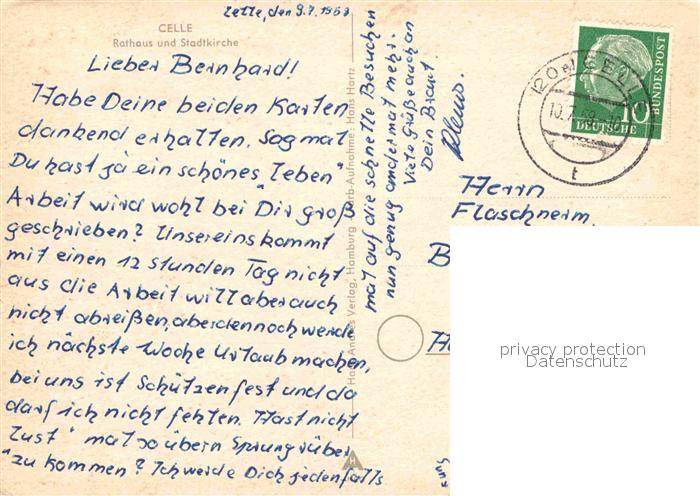 CELLE
Rathaus und Stadtkirche
Celle, den 9.7.1958
Lieber Bernhard!
Habe Deine beiden Karten
dankend erhalten. Sag mal
Du hast ja ein schönes Leben"
Arbeit wird wohl bei "Dir groß
geschrieben? Unsereins kommt
mit einen 12 Stunden Tag nicht
aus die Arbeit will aber auch
nicht abreißen, aber dennoch werde
ich nächste Woche Urlaub machen,
bei uns ist Schützenfest und da
darf ich nicht fehlen. Hast nicht
Lust" mal so übern Sprung rüber
"zu kommen? Ich werde Dich jedenfalls
mal auf die schnelle Besuchen
nun genug andermal mehr.
Viele Grüße auch an
Dein Braut.
Klaus.
Hans Andres Verlag, Hamburg Farb-Aufnahme: Hans Hartz
DEUTSCHE
BUNDESPOST
10
10.7.
t
Herrn
Flaschnerm.
B
H
privacy protection
Datenschutz